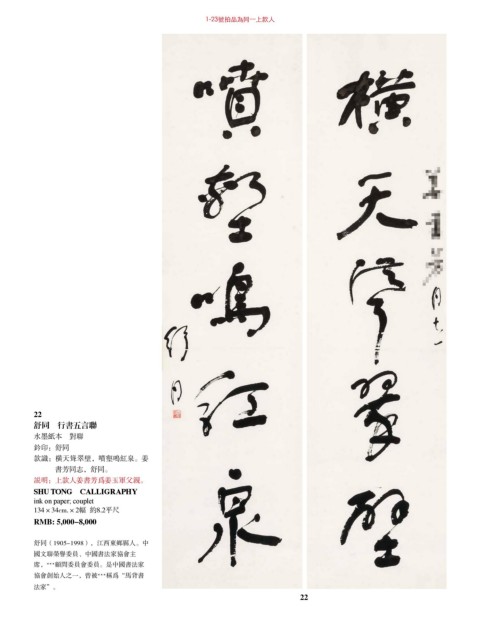 1-23號拍品為同一上款人
橫天聳翠壁
噴壑鳴紅泉
舒同
22
舒同 行書五言聯
水墨紙本 對聯
鈐印：舒同
款識：橫天聳翠壁，噴壑鳴紅泉。姜
書芳同志，舒同。
說明：上款人姜書芳爲姜玉軍父親。
SHU TONG CALLIGRAPHY
ink on paper; couplet
134 × 34cm. × 2幅 約8.2平尺
RMB: 5,000–8,000
舒同（1905-1998），江西東鄉縣人。中
國文聯榮譽委員、中國書法家協會主
席、***顧問委員會委員。是中國書法家
協會創始人之一，曾被***稱爲“馬背書
法家”。
22